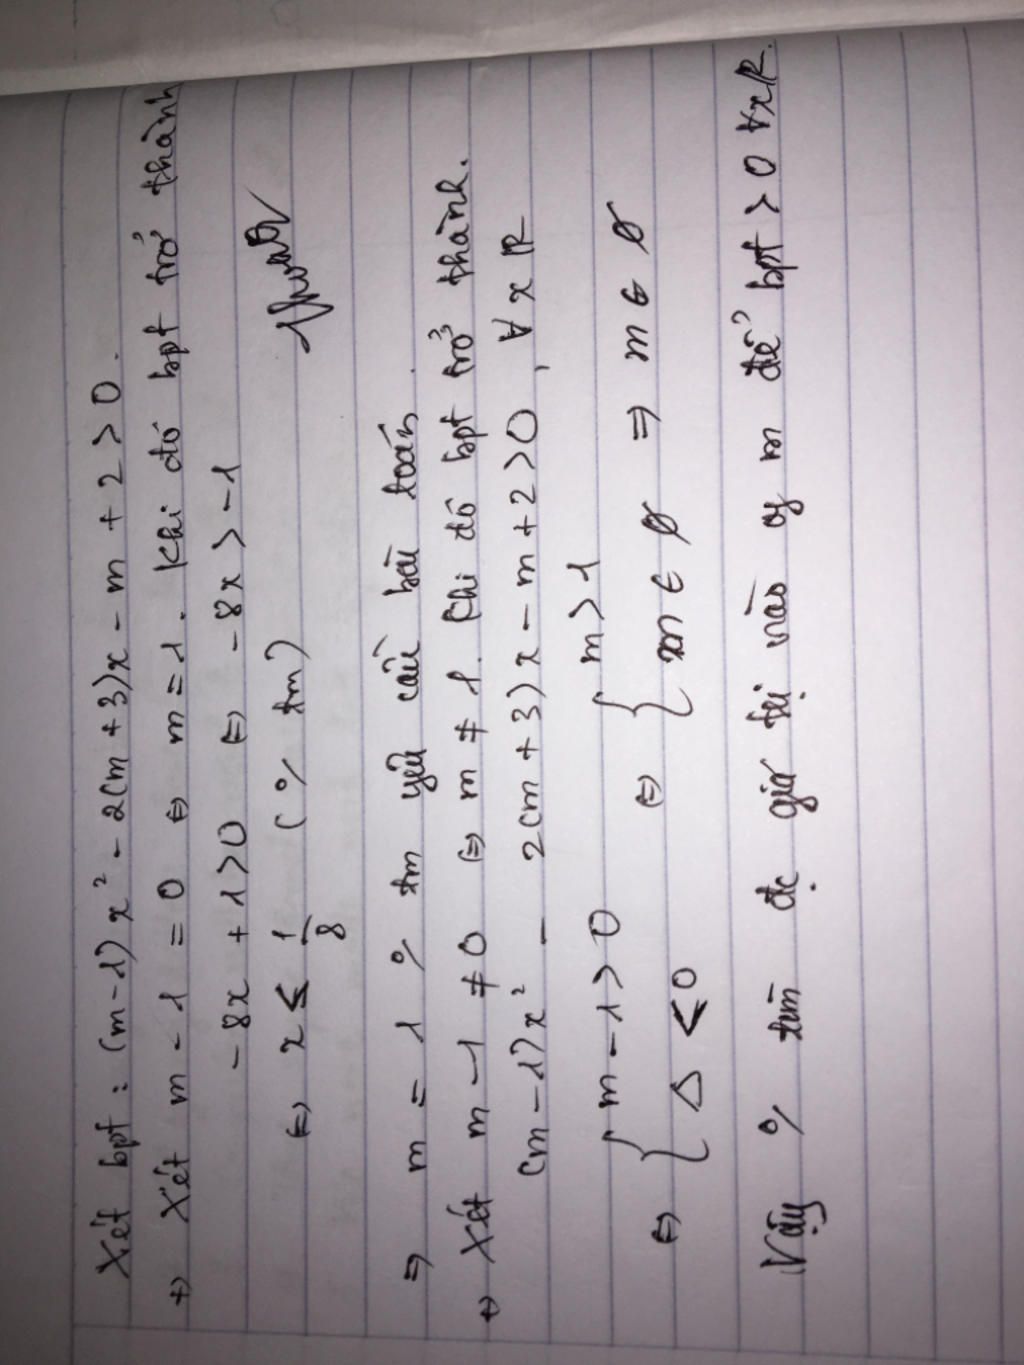 Xét bpt : (m-1)x² - 2(m+3)x - m + 2 > 0.
+) Xét m - 1 = 0 ⇔ m = 1. Khi đó bpt trở thành
-8x + 1 > 0 ⇔ -8x > -1
⇔ x < 1/8 (% tm)
⇒ m = 1 % tm yêu cầu bài toán.
+) Xét m - 1 ≠ 0 ⇔ m ≠ 1. Khi đó bpt trở thành.
(m-1)x² - 2(m+3)x - m + 2 > 0, ∀ x R
⇔ { m - 1 > 0 ⇔ { m > 1
Δ < 0 m ∈ ∅ ⇒ m ∈ ∅
Vậy % tìm đc giá trị nào of m để bpt > 0 ∀xR.